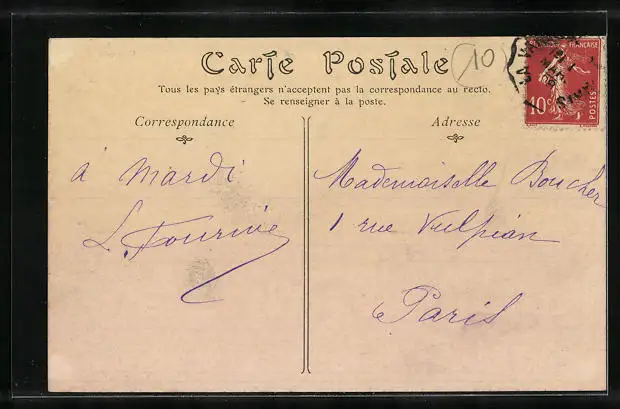 Carte Postale
(10)
Tous les pays étrangers n'acceptent pas la correspondance au recto.
Se renseigner à la poste.
Correspondance
Adresse
10c
POSTES
à mardi
L. Fournie
Mademoiselle Boucher
1 rue Vulpian
Paris